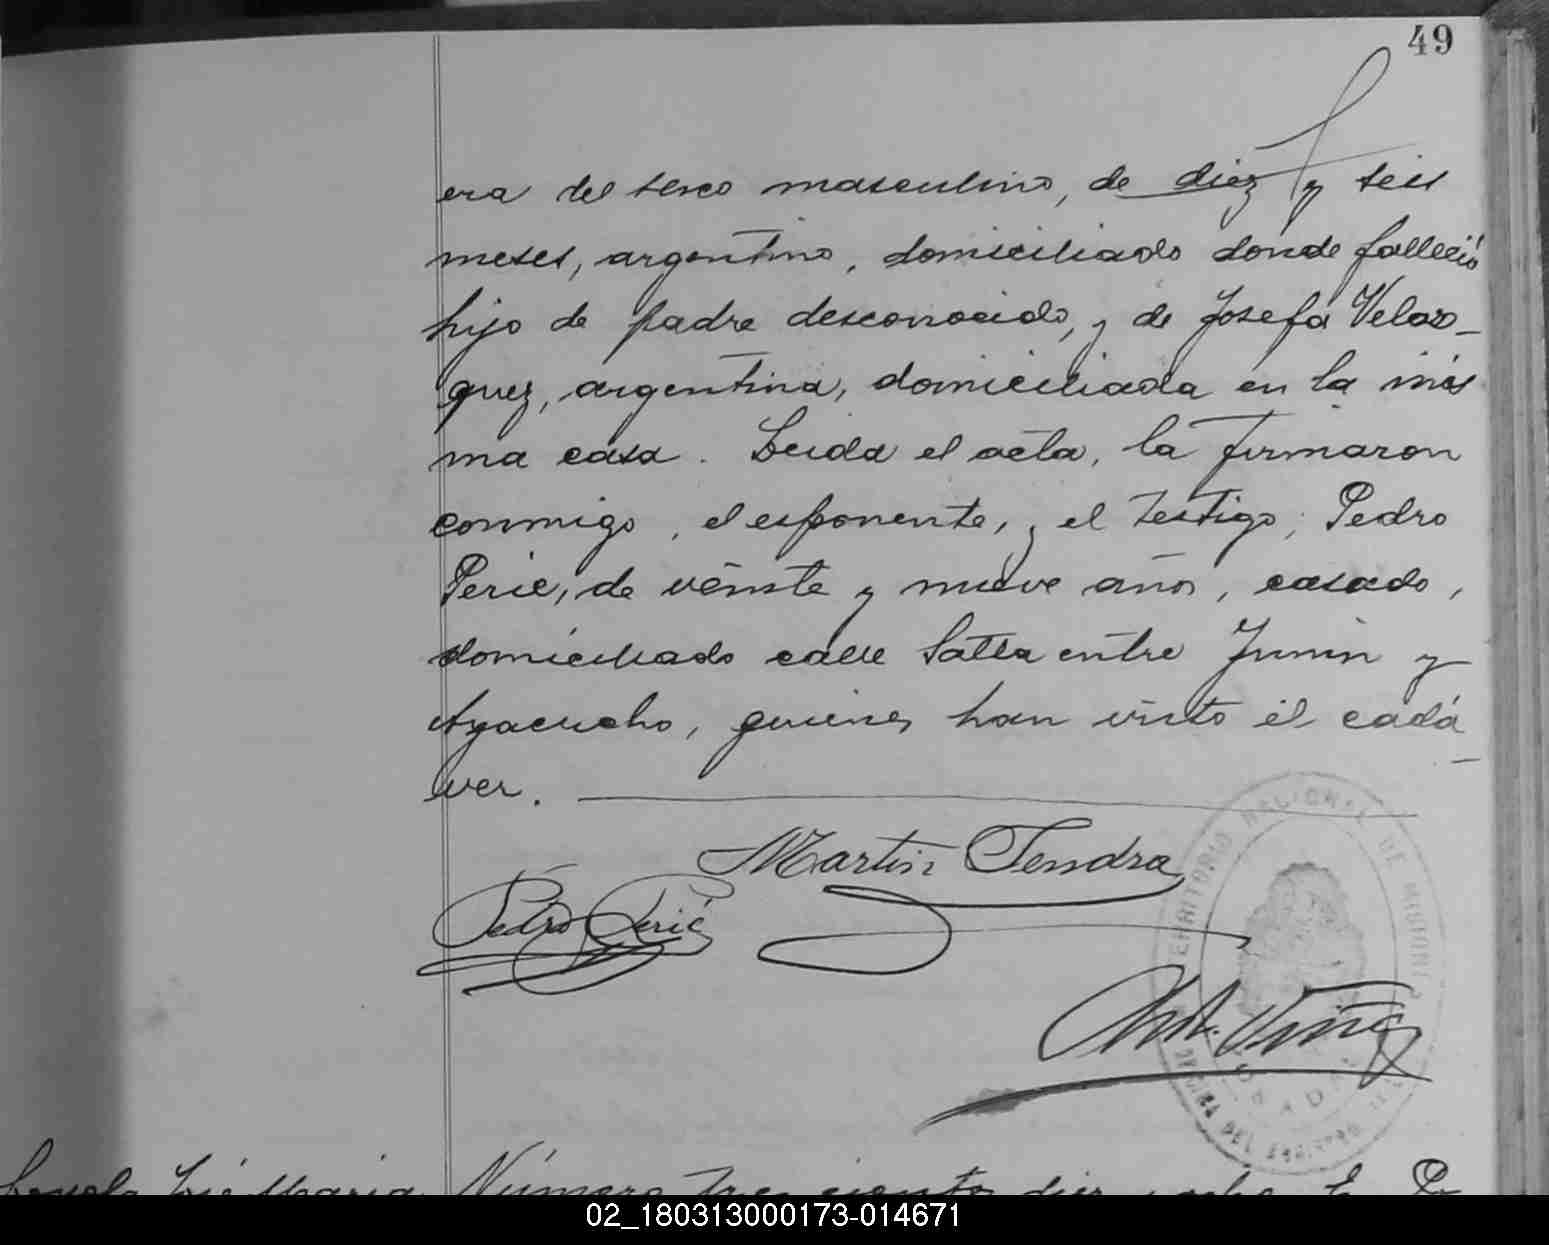 49
era del secso masculino, de diez y seis
meses, argentino, domiciliado donde falleció
hijo de padre desconocido, y de Josefa Velas-
quez, argentina, domiciliada en la mis
ma casa. Leida el acta, la firmaron
conmigo, el esponente, y el testigo, Pedro
Perié, de veinte y nueve años, casado,
domiciliado calle Salta entre Junin y
Ayacucho, quienes han visto el cadá-
ver.
Martin Tendra
Pedro Perié
TERRITORIO NACIONAL DE MISIONES
POSADAS
José Maria Número trescientos diez y ocho
02_180313000173-014671